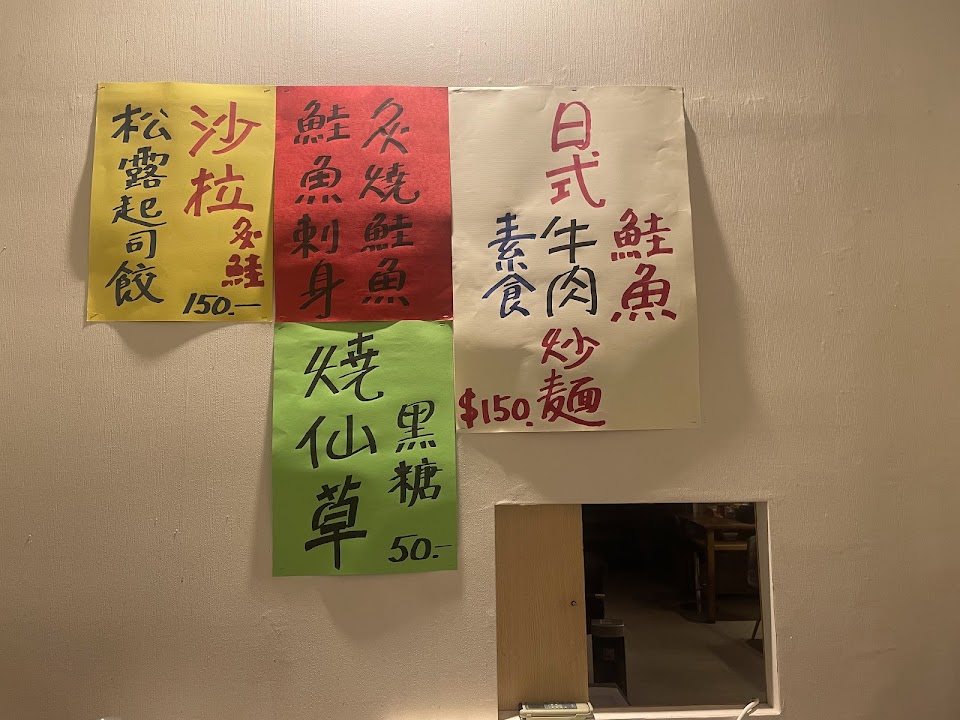 日式
鮭魚
牛肉
素食
炒麵
$150.
炙燒鮭魚
鮭魚刺身
沙拉
炙鮭
松露起司餃
150.-
燒仙草
黑糖
50.-